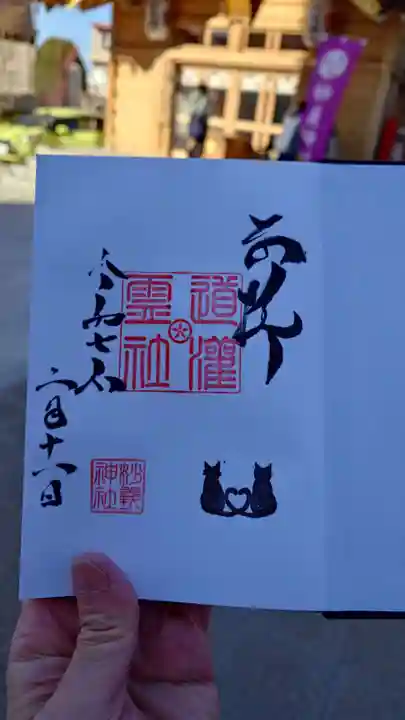 奉拝
道灌
霊社
令和七年
二月十六日
妙義
神社